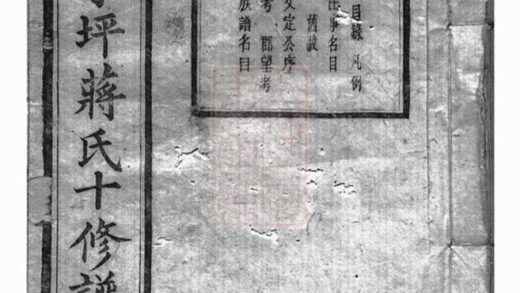 目錄 凡例
事名目
舊跋
文定公序
考 郡望考
族譜名目
坪蔣氏十修譜